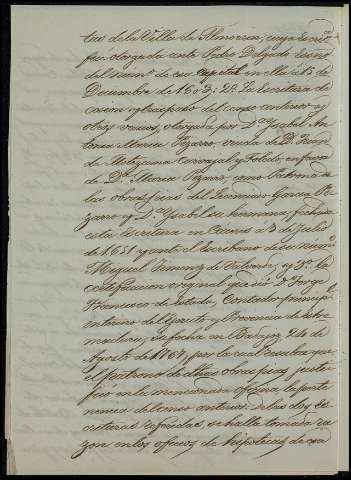 tas de la Villa de Almorcon, cuya Escritª
fué otorgada ante Pedro Delgado Essno
del numº de esa capital en ella á 15 de
Diciembre de 1603: 2ª la Escritura de
cesion y traspaso del censo anterior y
otros varios, otorgada por Dª Ysabel An-
tonia Maria Pizarro, viuda de D. Juan
de Motezuma Carvajal y Toledo, en favor
de Dª Maria Pizarro, como Patrona de
las obras pias del Licenciado Garcia Pi-
zarro y Dª Ysabel su hermana, fecha
esta escritura en Caceres a 3 de Julio
de 1651 y ante el Escribano de su numº
Miguel Jimenez de Valverde, y 3ª la
certificacion original que dió D. Jorge
Francisco de Estada, Contador principl
interino del Egercito y Provincia de Estre-
madura, su fecha en Badajoz 24 de
Agosto de 1767, por la cual resulta que
el patrono de dhas obras pias justi-
ficó en la mencionada oficina, la perte-
nencia del censo anterior. De las dos Es-
crituras referidas, se halla tomada ra-
zon en los oficios de hipotecas de esa